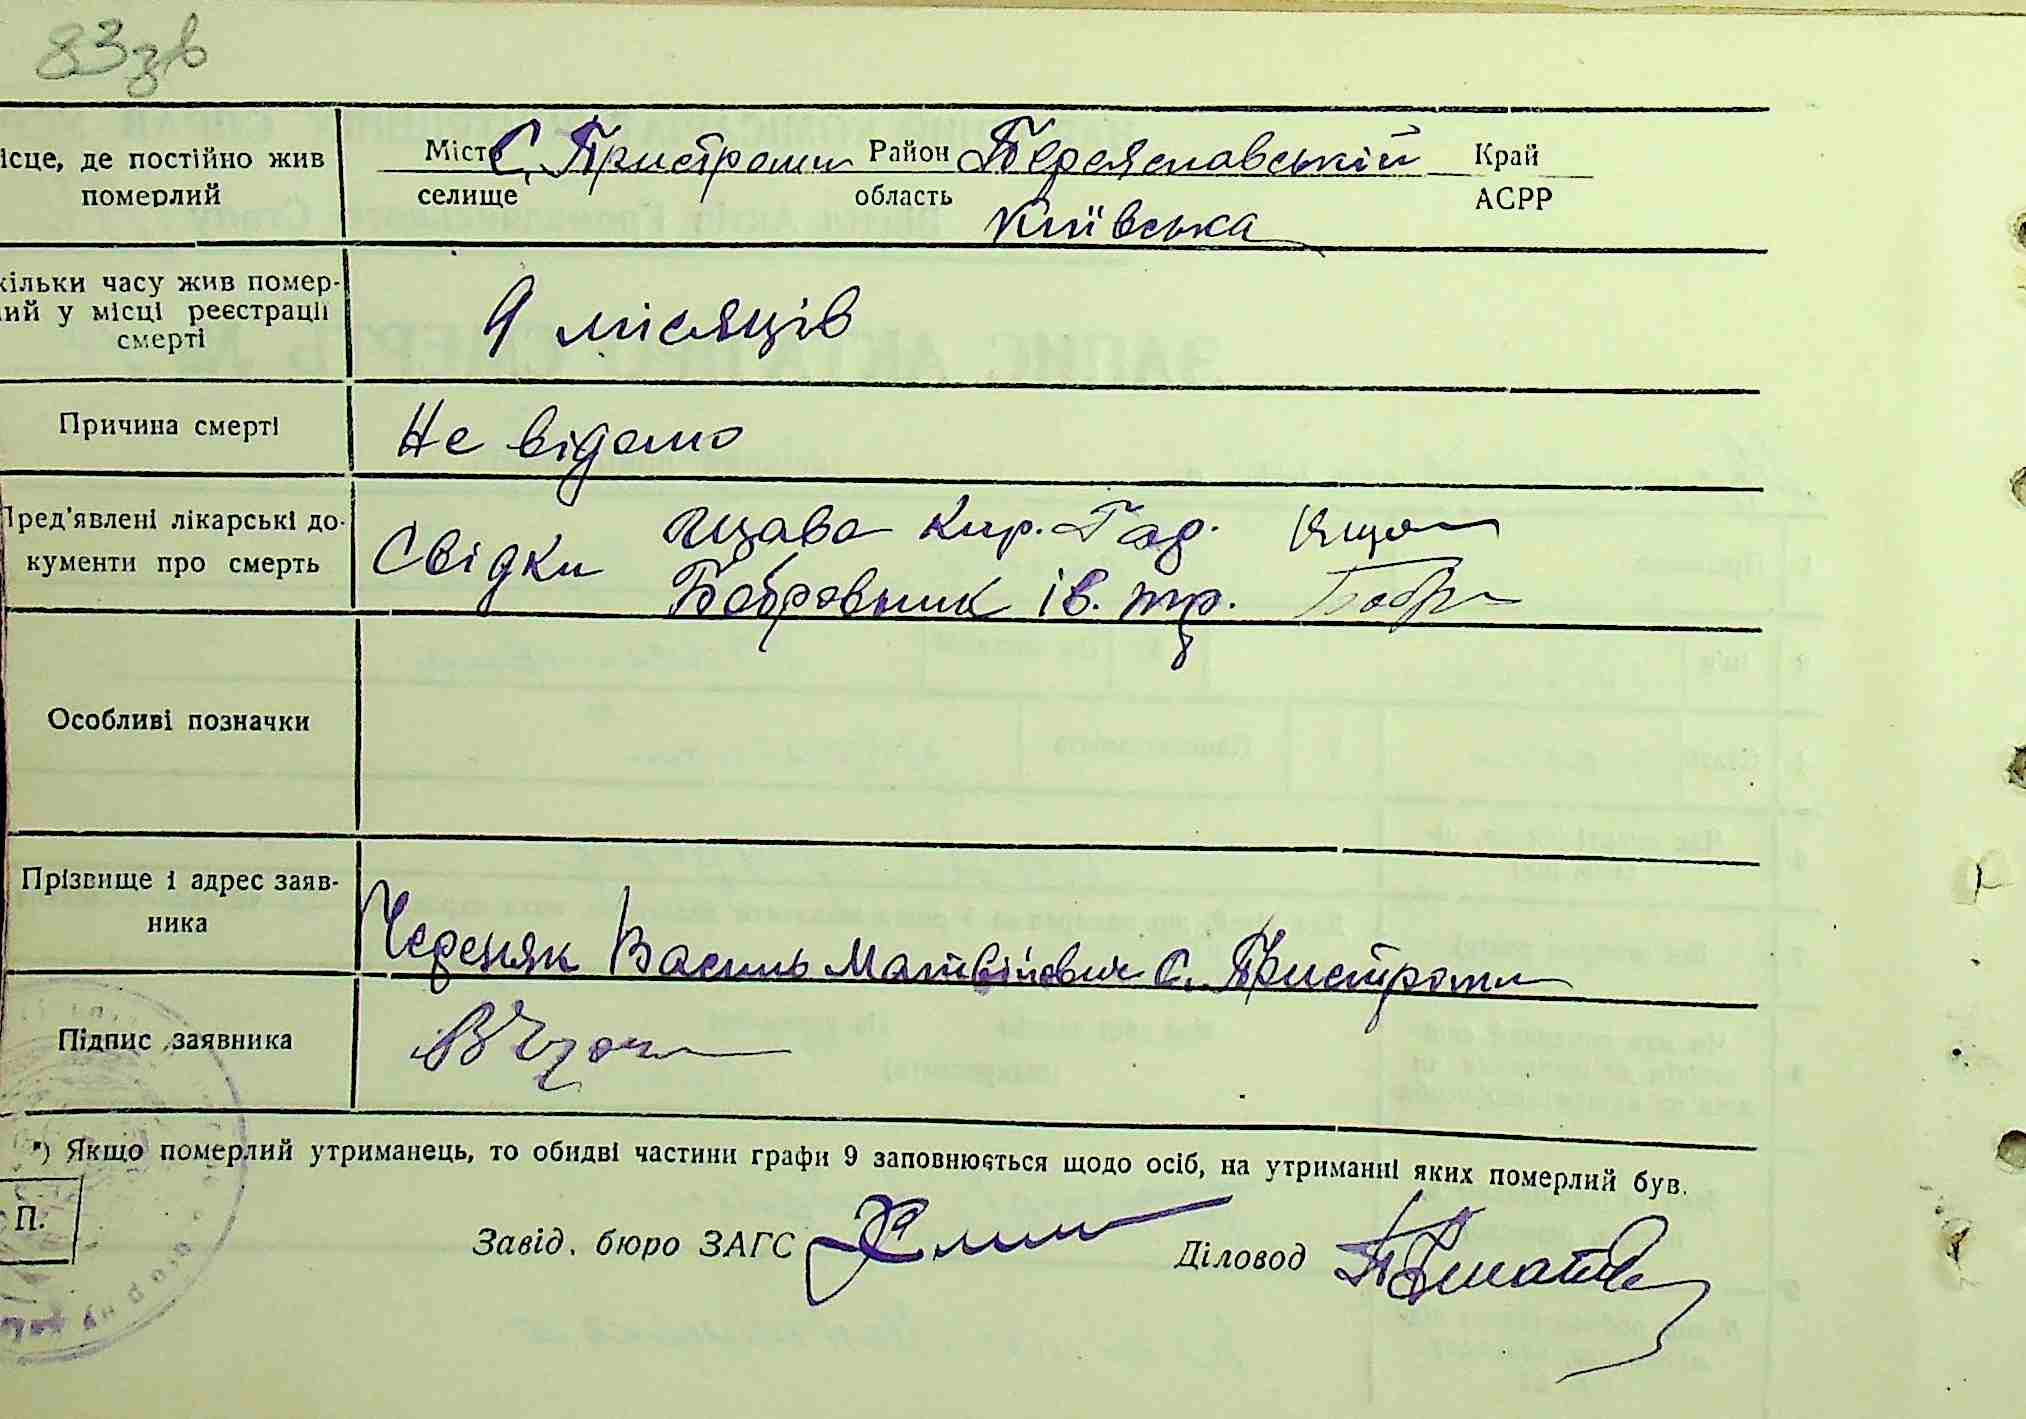 83зв
ісце, де постійно жив
померлий
Місто С. Пристроми Район Переяславській Край
селище область АСРР
Київська
кільки часу жив помер-
ий у місці реєстрації
смерті
9 місяців
Причина смерті
Не відомо
Пред'явлені лікарські до-
кументи про смерть
Свідки
Іщова Кир. Гад.
Бобровник ів. тр. Бобр
Особливі позначки
Прізвище і адрес заяв-
ника
Василь Матвійович с. Пристроми
Підпис заявника
*) Якщо померлий утриманець, то обидві частини графи 9 заповнюється щодо осіб, на утриманні яких померлий був.
П.
Завід. бюро ЗАГС Діловод